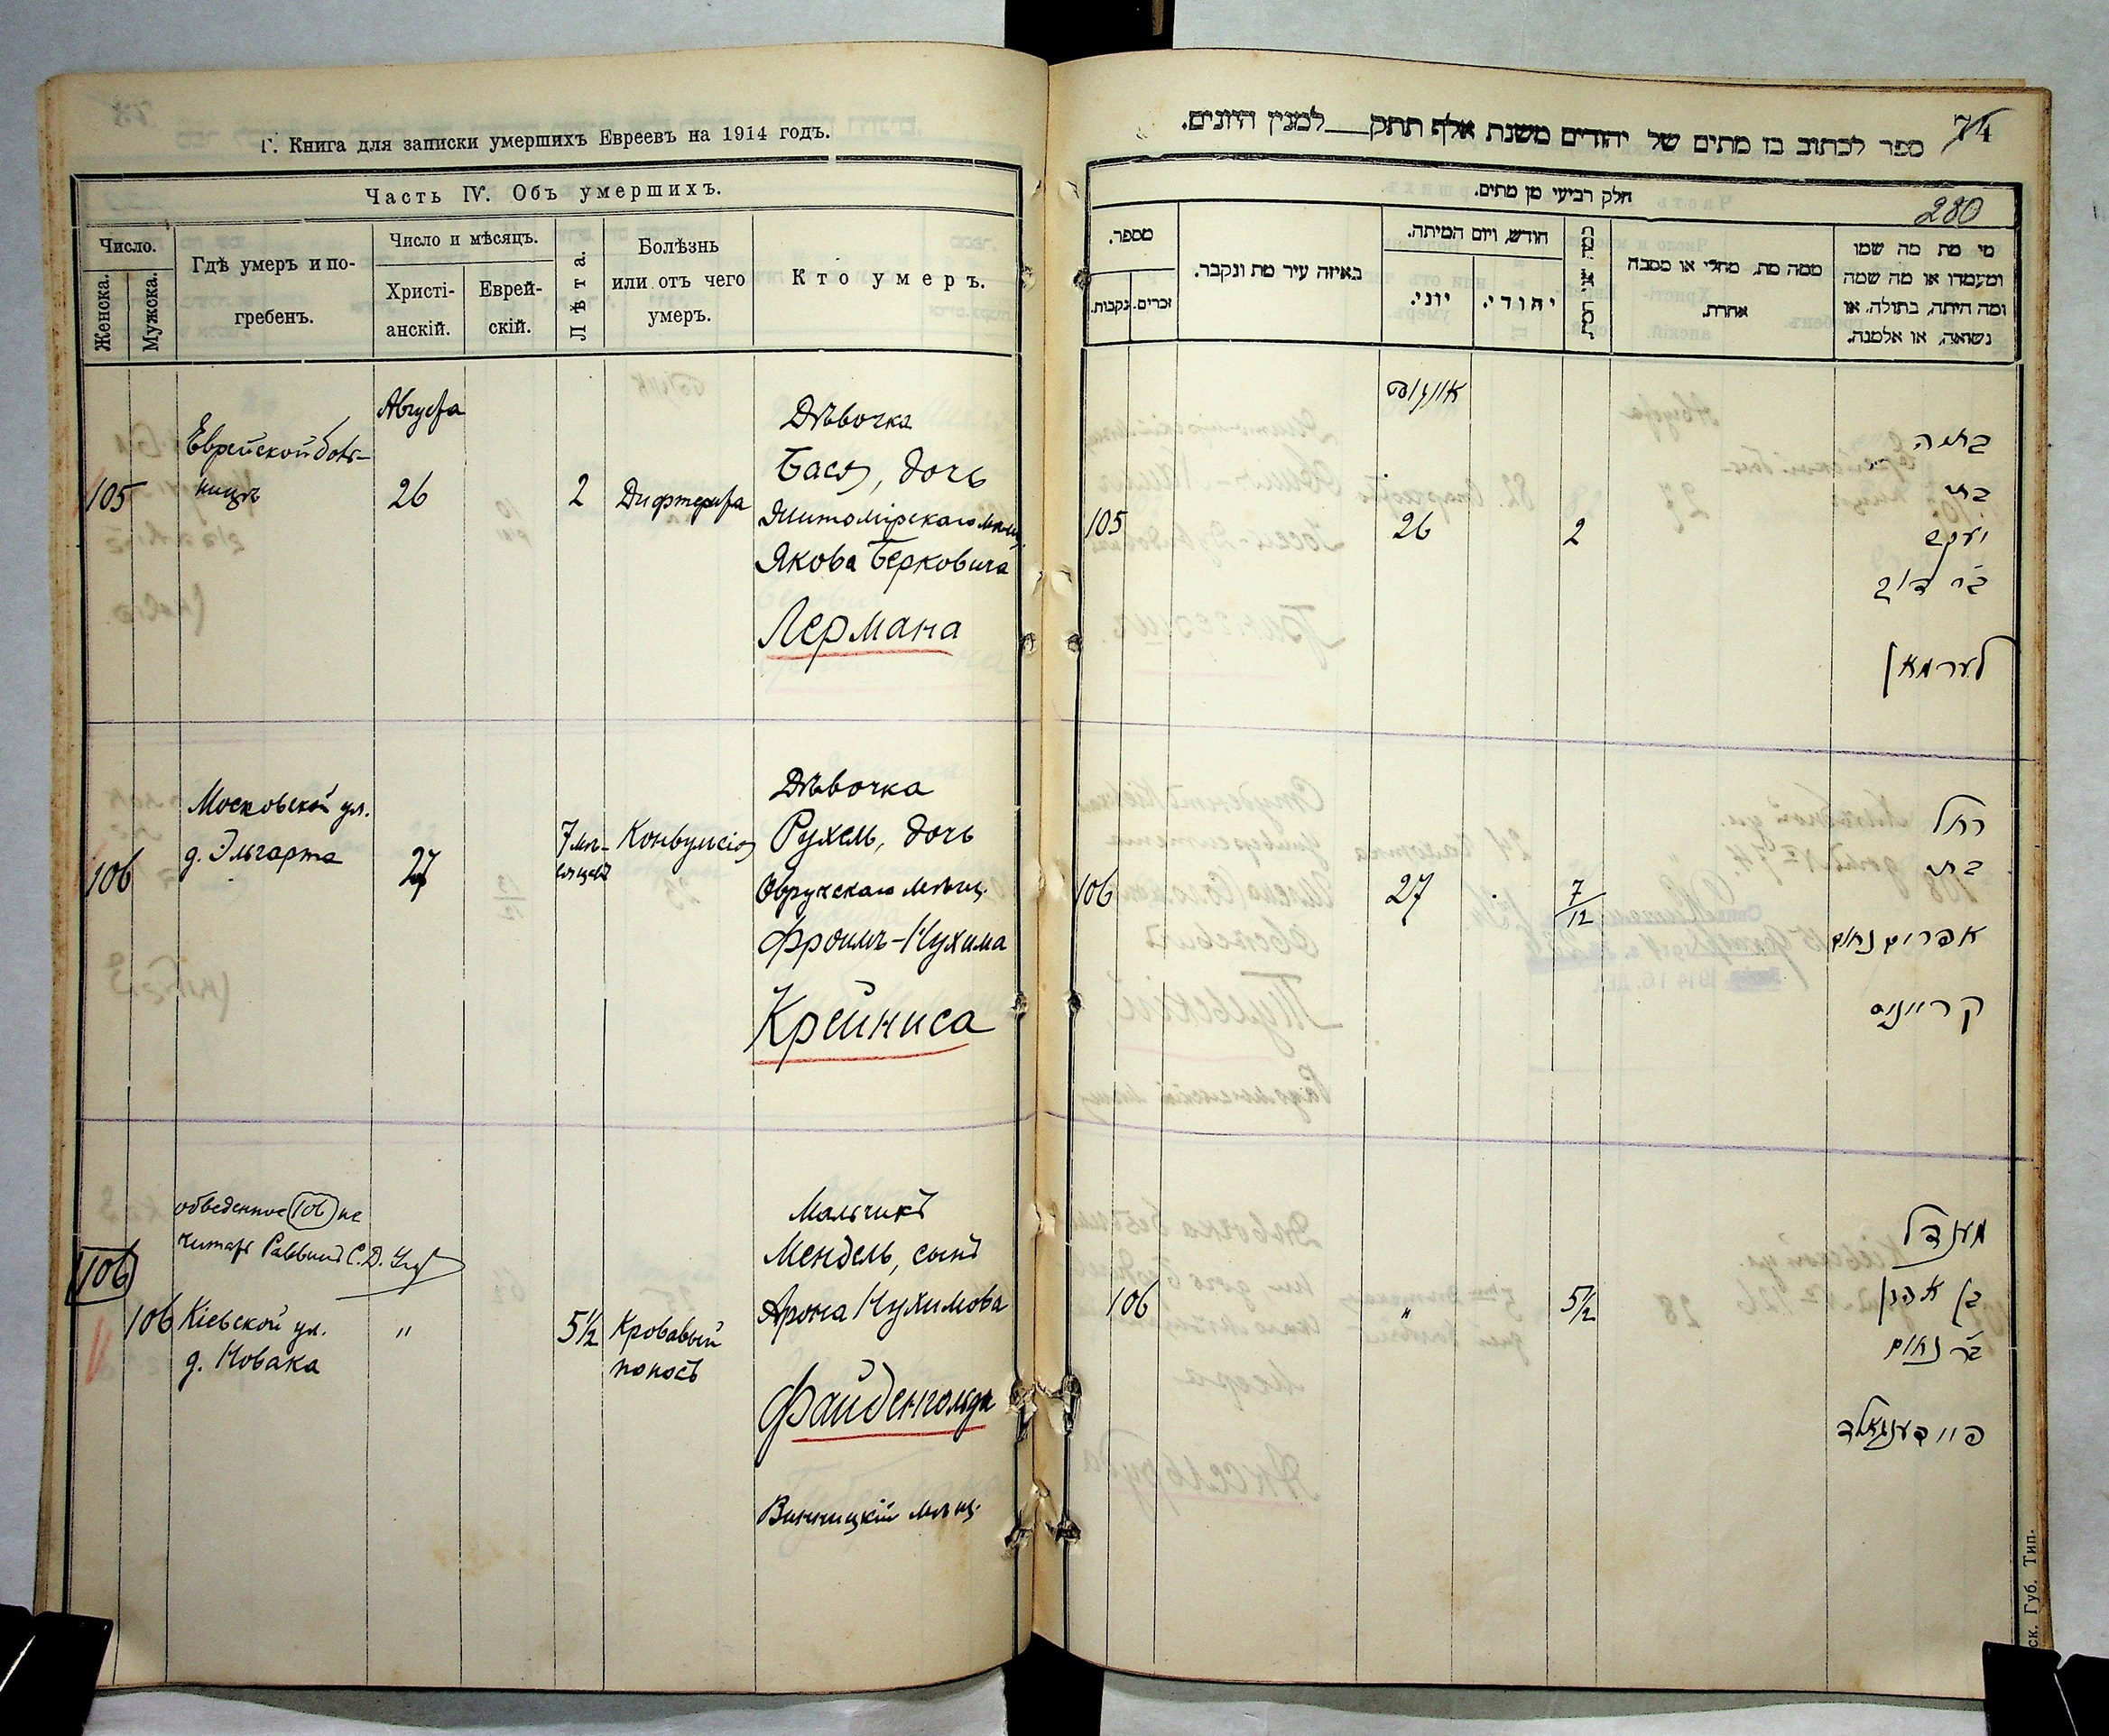 Г. Книга для записки умершихъ Евреевъ на 1914 годъ.
Часть IV. Объ умершихъ.
Число.
Женска.
Мужска.
Гдѣ умеръ и по-
гребенъ.
Число и мѣсяцъ.
Христі-
анскій.
Еврей-
скій.
Лѣта.
Болѣзнь
или отъ чего
умеръ.
Кто умеръ.
Августа
105
Еврейской боль-
ницѣ
26
2
Дифтерита
Дѣвочка
Бася, дочь
Житомірскаго мѣщ.
Якова Берковича
Лермана
106
Московской ул.
д. Эльгарта
27
7 мѣ-
сяцевъ
Конвульсія
Дѣвочка
Рухель, дочь
Овручскаго мѣщ.
Фроимъ-Нухима
Крейниса
обведенное 106 не
читать Раввинъ С. Д.
106
106
Кіевской ул.
д. Новака
"
5½
Кровавый
поносъ
Мальчикъ
Мендель, сынъ
Арона Нухимова
Файденгольда
Винницкій мѣщ.
74
ספר לכתוב בו מתים של יהודים משנת אלף תתק למנין היונים.
280
חלק רביעי מן מתים.
מספר.
נקבות.
זכרים.
באיזה עיר מת ונקבר.
חודש, ויום המיתה.
יוני.
יהודי.
ממה מת, מחלי או מסבה
אחרת.
מי מת מה שמו
ומעמדו או מה שמה
ומה היתה, בתולה, או
נשואה, או אלמנה.
אויגוסט
105
26
2
בתיה
בת
יעקב
בר דוב
לערמאן
106
27
7/12
רחל
בת
אפרים נחום
קרייניס
106
"
5½
מענדל
בן אהרן
בר נחום
פיידענגאלד
ск. Губ. Тип.